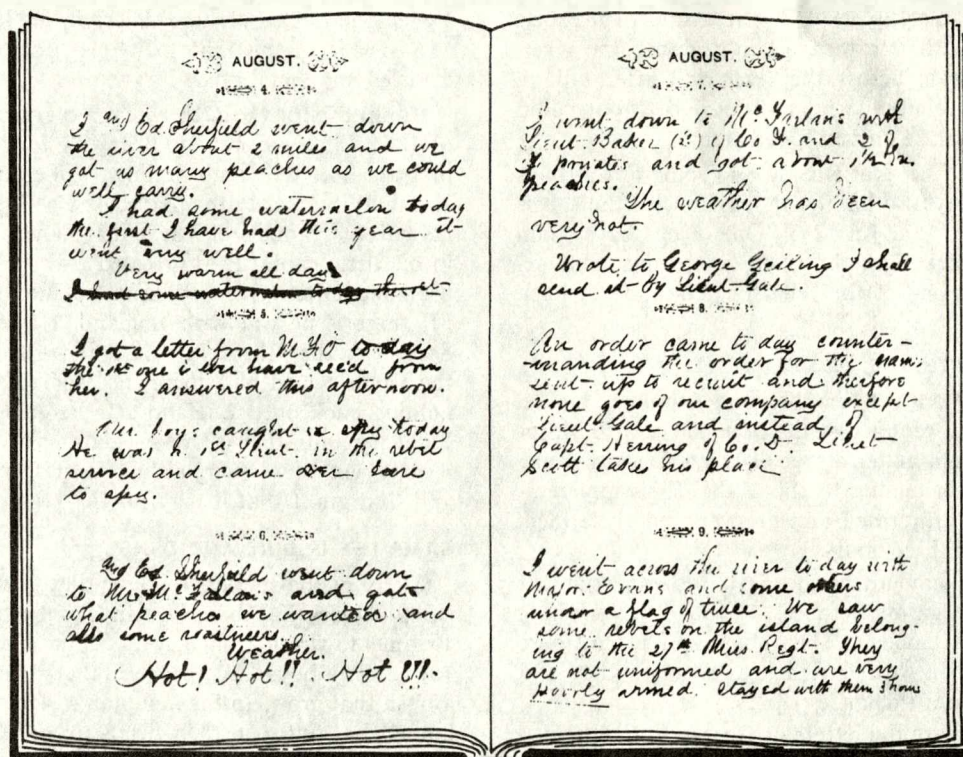 AUGUST.
4.
I and Ed. Sheffield went down
the river about 2 miles and we
got as many peaches as we could
well carry.
I had some watermelon today
the first I have had this year it
went very well.
Very warm all day
I had some watermelon to day the 1st
5.
I got a letter from M.F.O to day
the 1st one I ever have rec'd from
her. I answered this afternoon.
Our boys caught a spy today
He was a 1st Lieut. in the rebel
service and came over here
to spy.
6.
and Ed. Sheffield went down
to Mr. McFarlans and got
what peaches we wanted and
also some roastneers.
Weather.
Hot! Hot!! Hot!!!
AUGUST.
7.
I went down to McFarlans with
Lieut. Baker (2) of Co F. and 2 of
privates and got about
peaches.
The weather has been
very hot.
Wrote to George Geiling I shall
send it by Lieut. Gale.
8.
An order came to day counter-
manding the order for the
sent up to recruit and therefore
none goes of our company except
Lieut Gale and instead of
Capt. Herring of Co. D. Lieut
Scott takes his place
9.
I went across the river to day with
Major Evans and some others
under a flag of truce. We saw
some rebels on the island belong-
ing to the 27th Miss. Regt. They
are not uniformed and are very
poorly armed. Stayed with them 3 hours